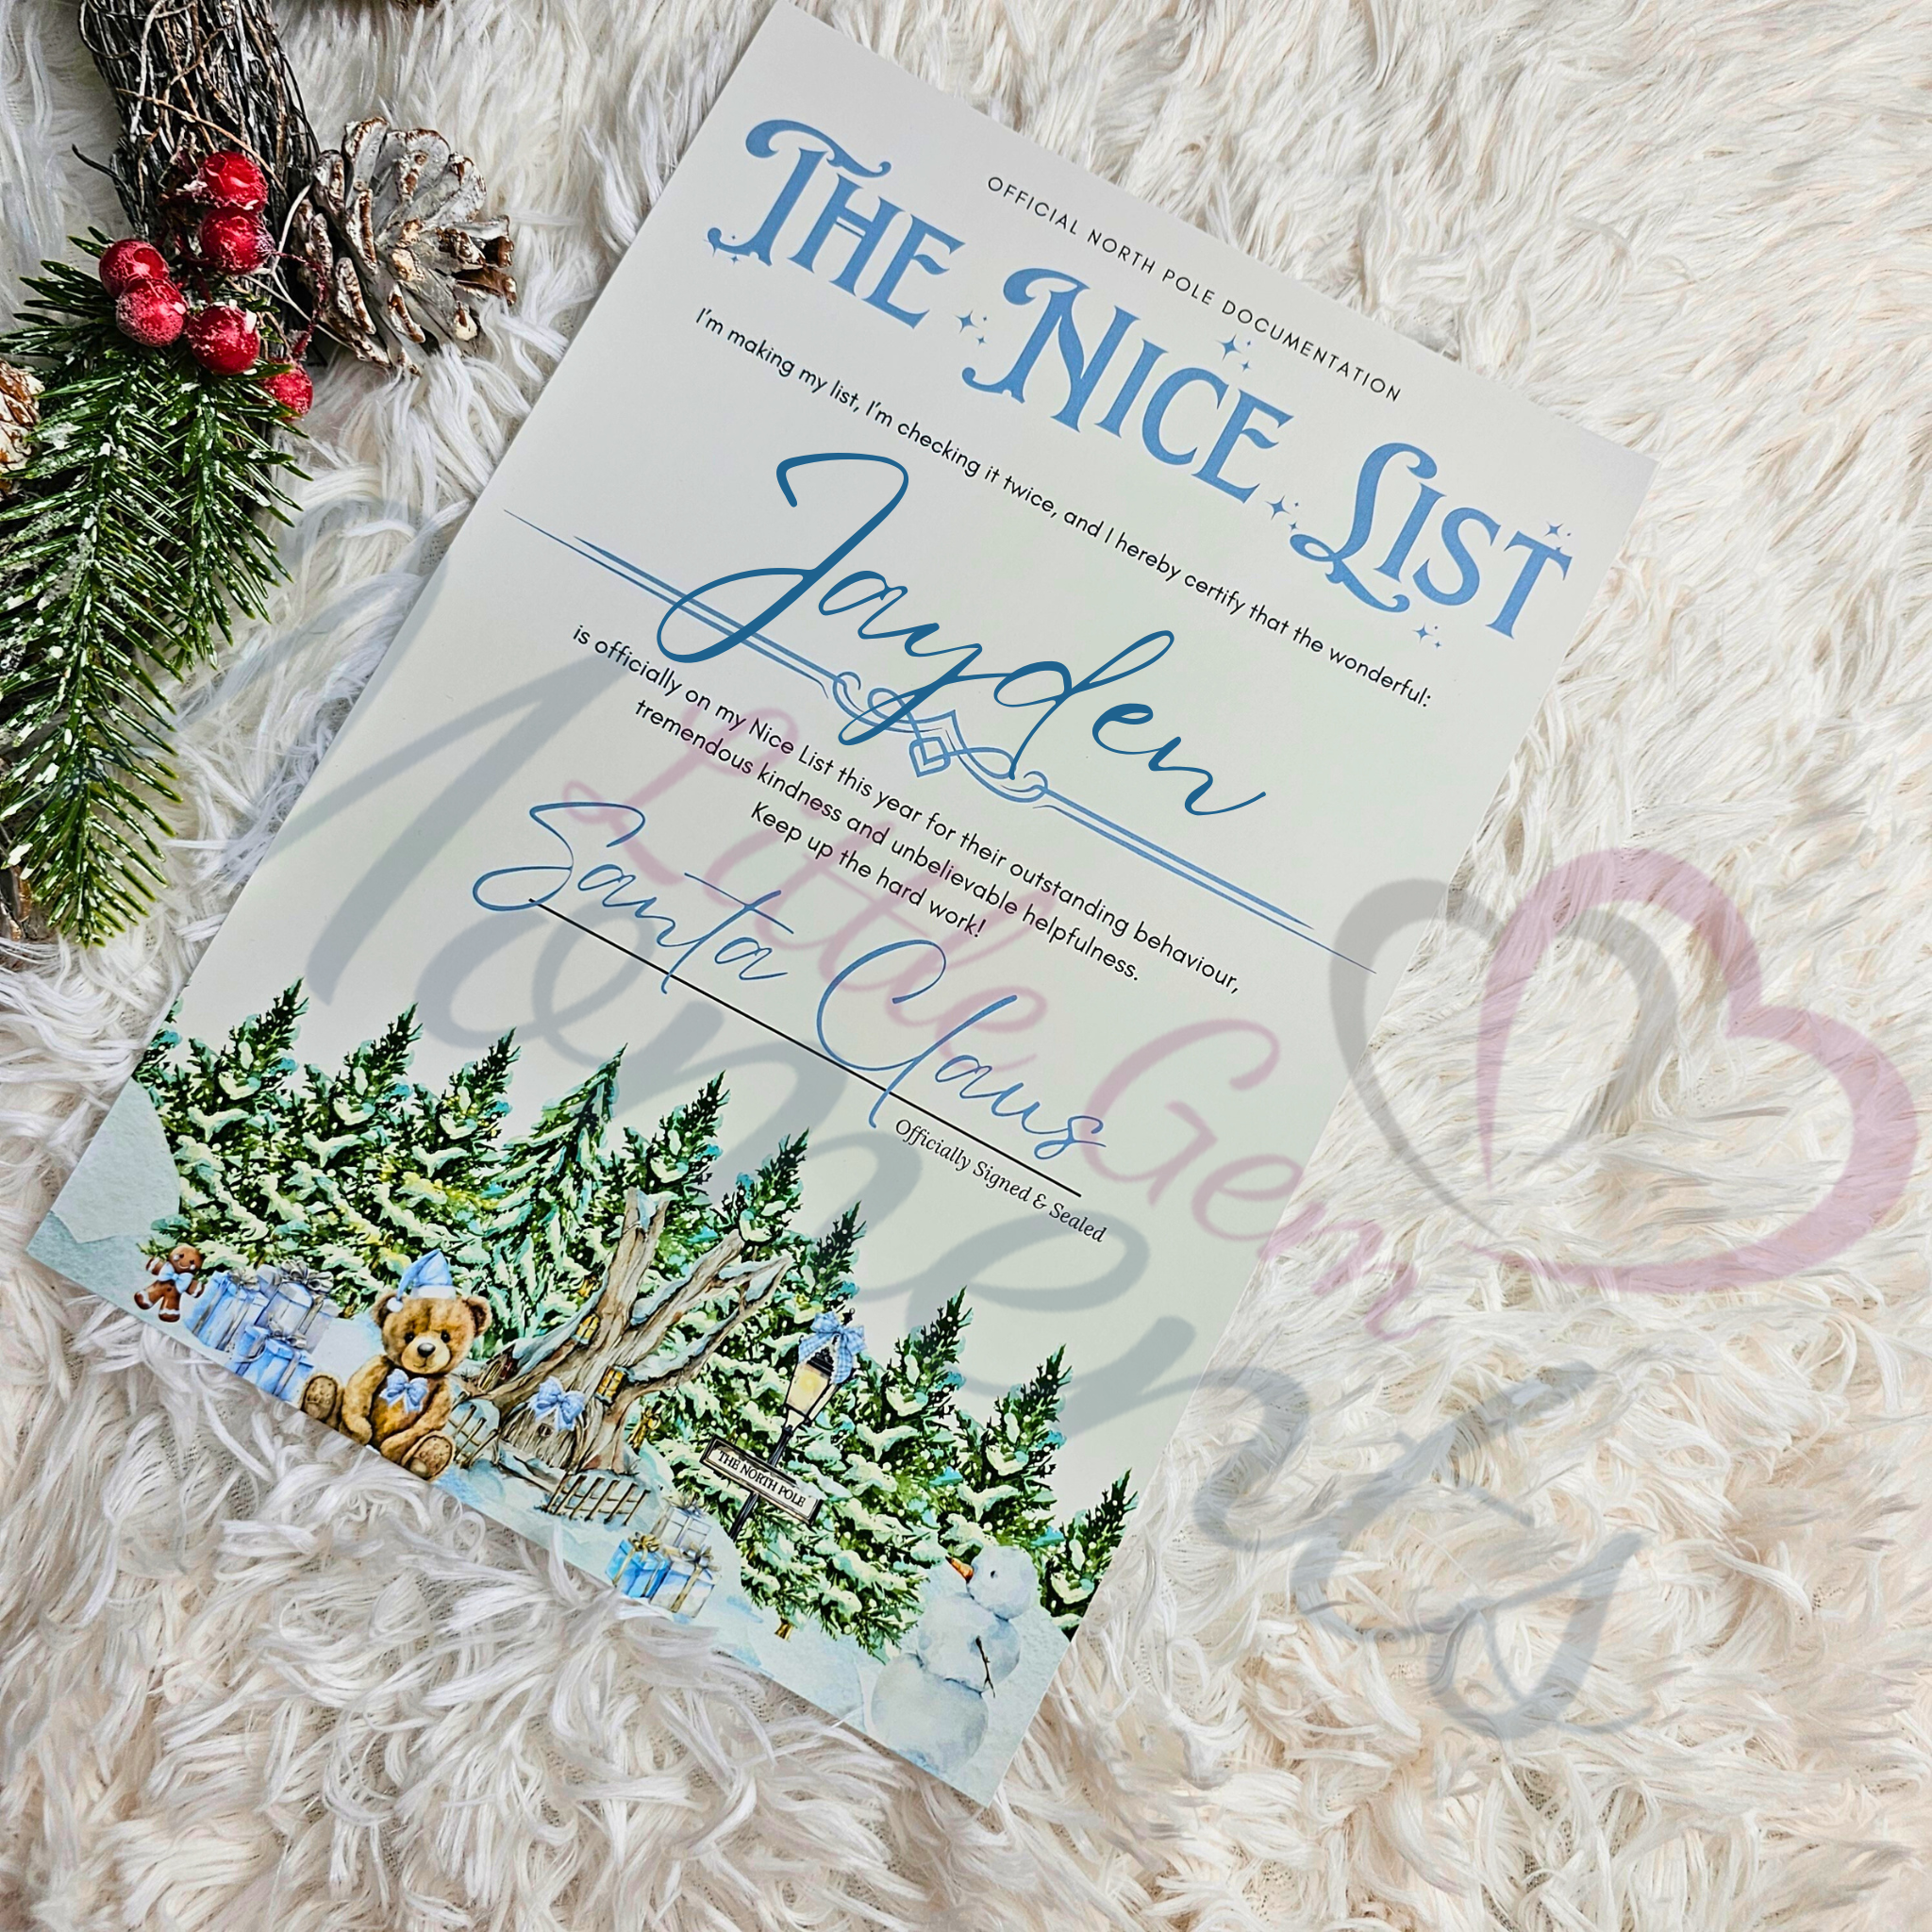 OFFICIAL NORTH POLE DOCUMENTATION
THE NICE LIST
I'm making my list, I'm checking it twice, and I hereby certify that the wonderful:
Jayden
is officially on my Nice List this year for their outstanding behaviour,
tremendous kindness and unbelievable helpfulness.
Keep up the hard work!
Santa Claus
Officially Signed & Sealed
THE NORTH POLE
Little Gem
Moments